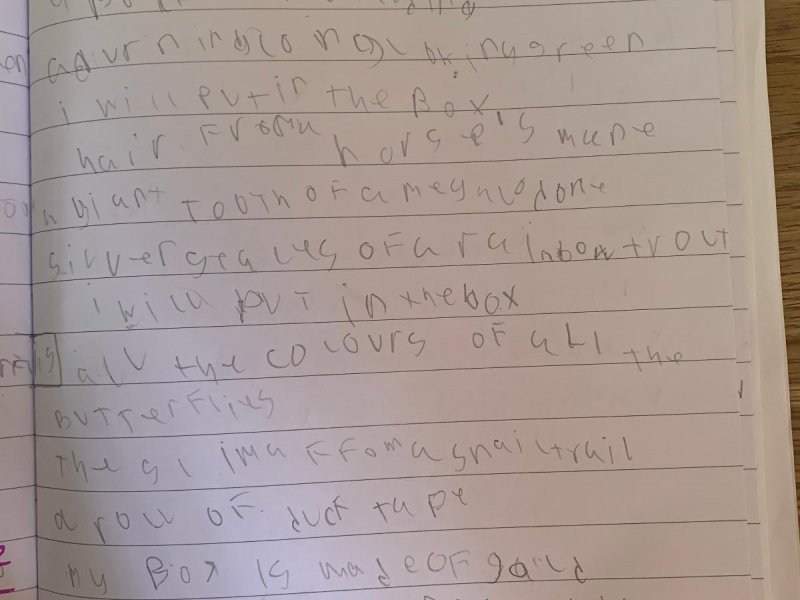 i will put in the Box
hair From a horse's mane
a giant tooth of a megalodone
silver scales of a rainbow trout
i will put in the box
all the colours of all the
Butterflies
the from a snail trail
a roll of duct tape
my Box is made of